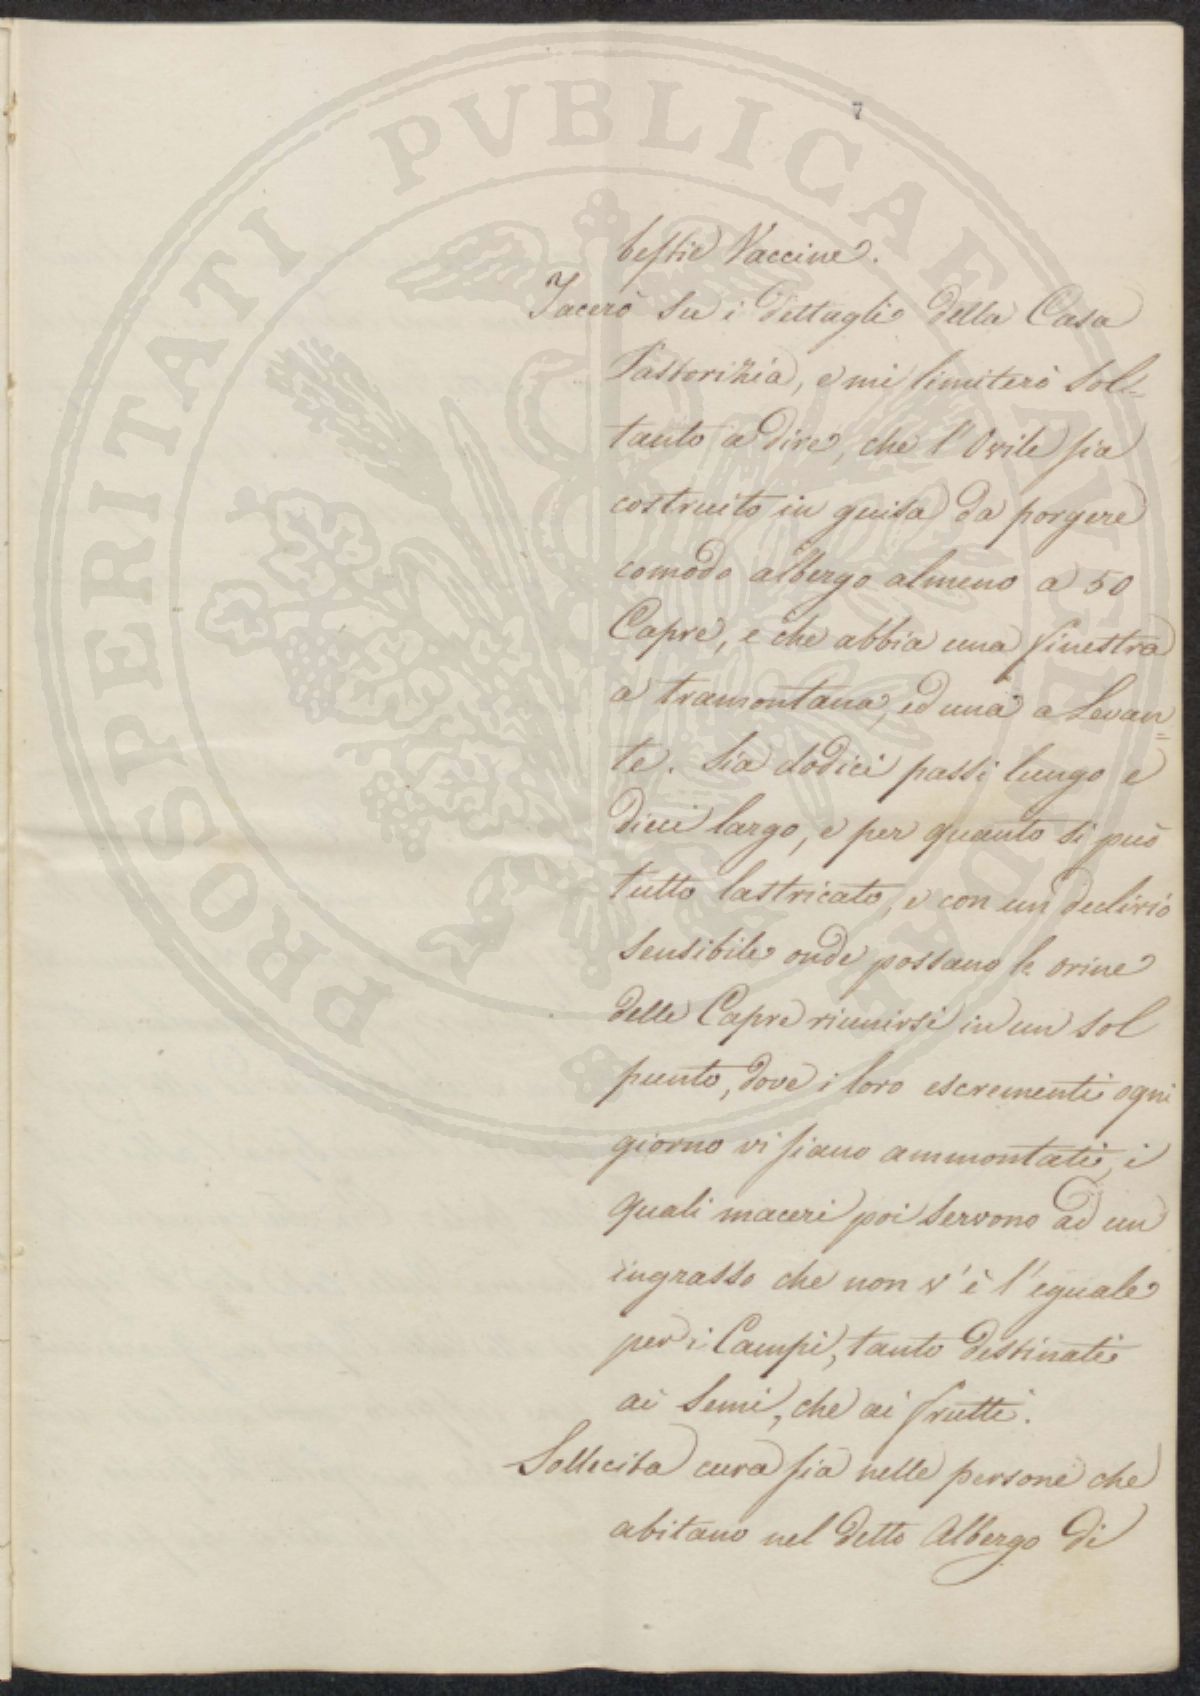 PROSPERITATI PVBLICAE AVGENDAE
7
bestie Vaccine.
Tacerò su i dettagli della Casa
Pastorizia, e mi limiterò sol=
tanto a dire, che l'Ovile sia
costruito in guisa da porgere
comodo albergo almeno a 50
Capre, e che abbia una finestra
a tramontana, ed una a Levan=
te. Sia dodici passi lungo e
dieci largo, e per quanto si può
tutto lastricato, e con un declivio
sensibile onde possano le orine
delle Capre riunirsi in un sol
punto, dove i loro escrementi ogni
giorno vi siano ammontati, i
quali maceri poi servono ad un
ingrasso che non v'è l'eguale
per i Campi, tanto destinati
ai Semi, che ai frutti.
Sollecita cura sia nelle persone che
abitano nel detto Albergo di